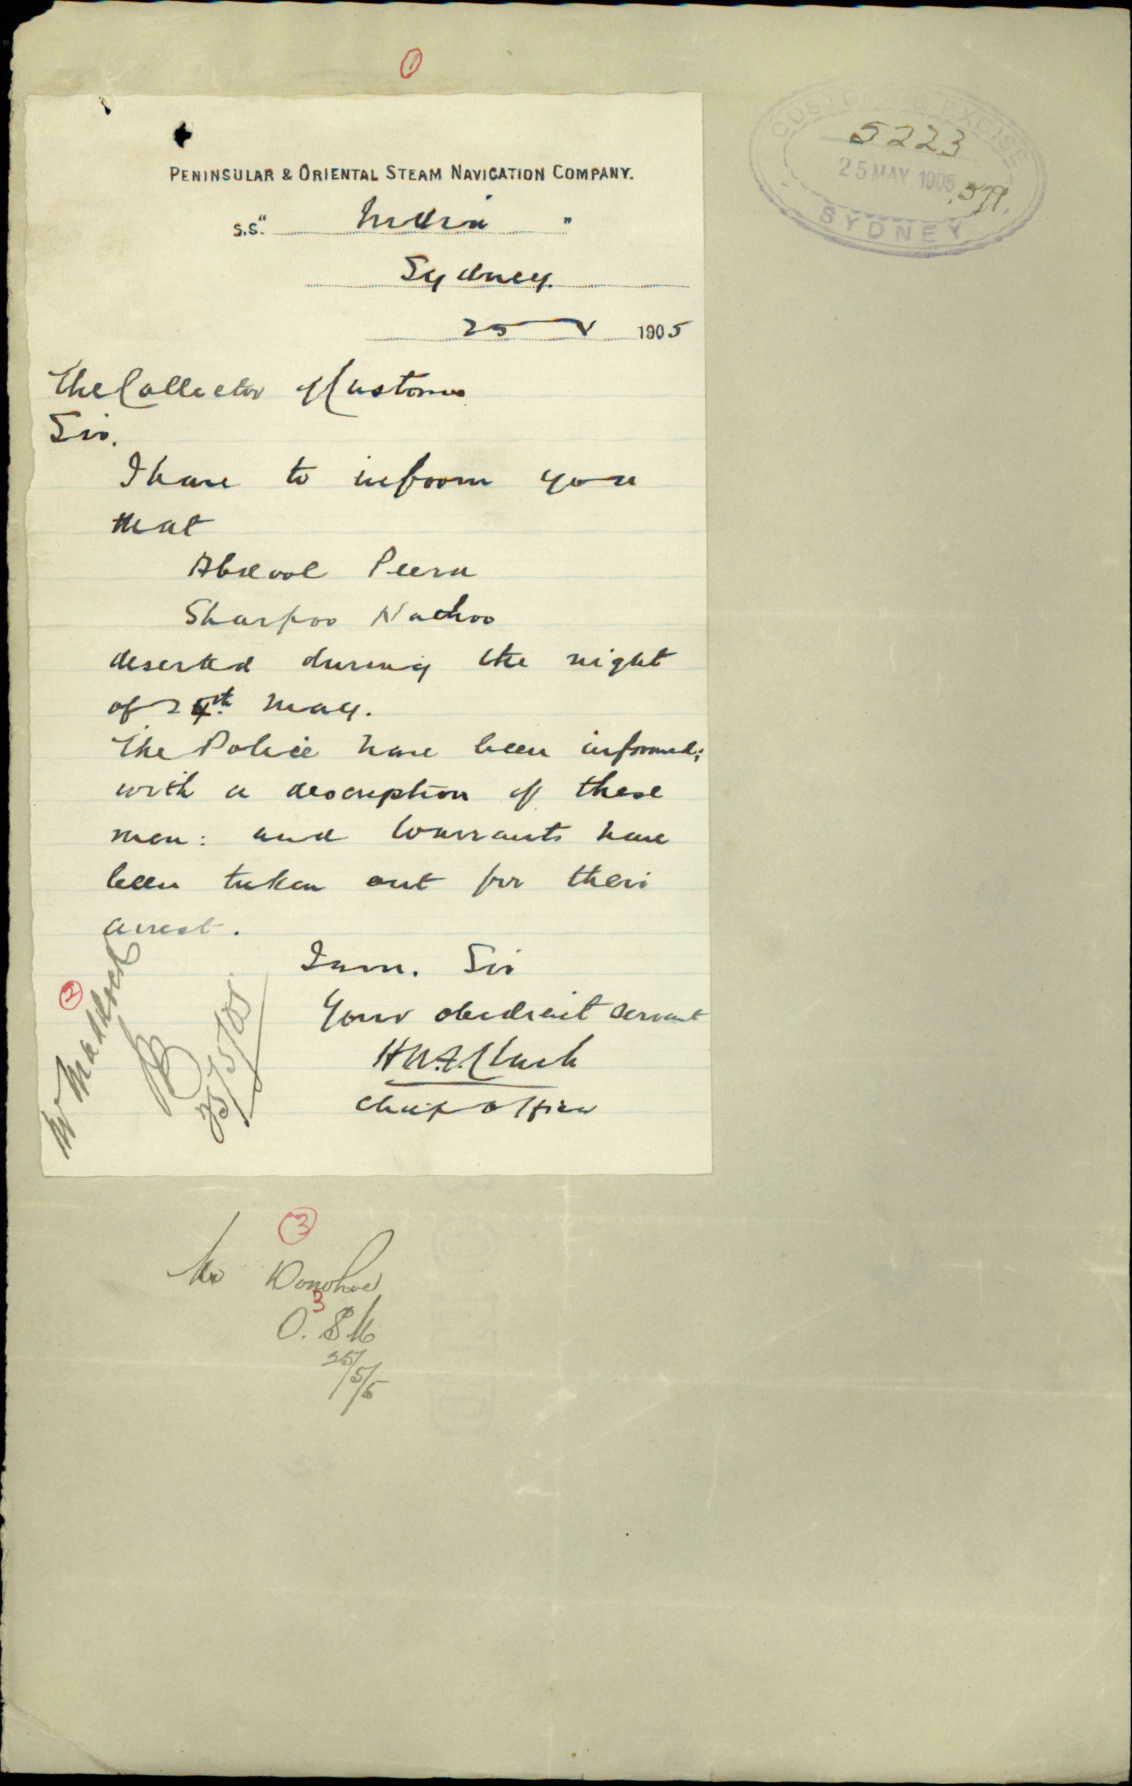 1
PENINSULAR & ORIENTAL STEAM NAVIGATION COMPANY.
S.S. "India"
Sydney.
25 V 1905
The Collector of Customs
Sir.
I have to inform you
that
Abdool Peera
Sharfoo Nathoo
deserted during the night
of 24th May.
The Police have been informed;
with a description of these
men: and Warrants have
been taken out for their
arrest.
I am. Sir
Your obedient servant
Chief Officer
2
Mr Maddock
25/5/05
3
Mr Donohoe
3
25/5/5
CUSTOMS & EXCISE
5223
25 MAY 1905
SYDNEY